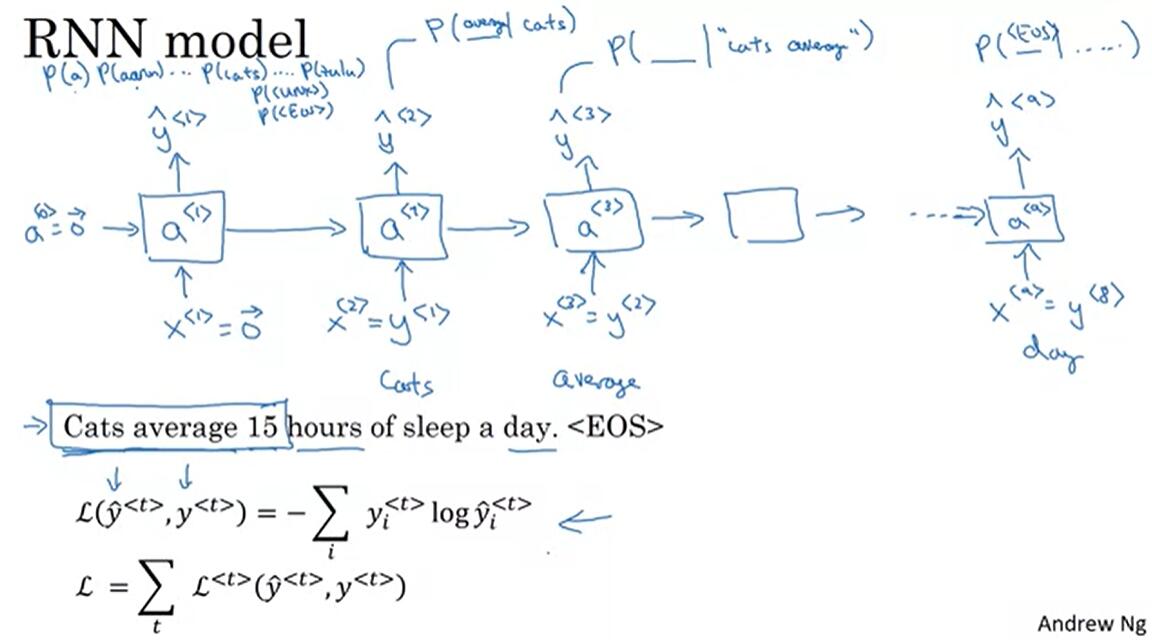 RNN model
P(a) P(aaron) ... P(cats) .... P(zulu)
P(<UNK>)
P(<EOS>)
P(average|cats)
P(__|"cats average")
P(<EOS>|.....)
ŷ<1> ŷ<2> ŷ<3> ŷ<9>
a<0>=0⃗ a<1> a<2> a<3> .... a<9>
x<1>=0⃗ x<2>=y<1> x<3>=y<2> x<9>=y<8>
Cats average day
Cats average 15 hours of sleep a day. <EOS>
ℒ(ŷ<t>, y<t>) = −∑ᵢ yᵢ<t> log ŷᵢ<t>
ℒ = ∑ₜ ℒ<t>(ŷ<t>, y<t>)
Andrew Ng